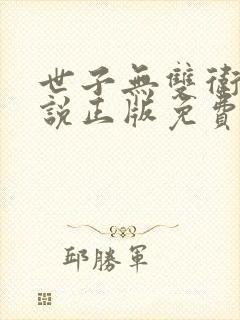 世子無雙衛
說正版免費
邱勝軍